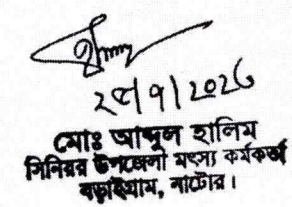 ২৮/৭/2026
মোঃ আব্দুল হালিম
সিনিয়র উপজেলা মৎস্য কর্মকর্তা
বড়াইগ্রাম, নাটোর।